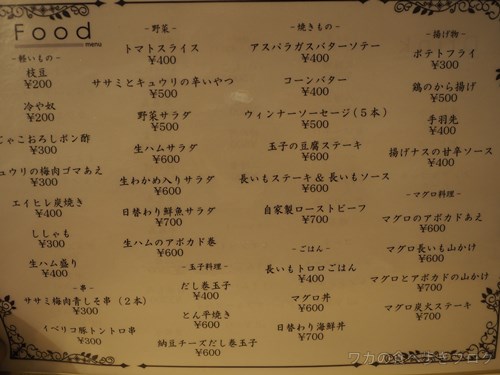 Food
menu
-軽いもの-
枝豆
¥200
冷や奴
¥200
じゃこおろしポン酢
¥300
キュウリの梅肉ゴマあえ
¥300
エイヒレ炭焼き
¥400
ししゃも
¥300
生ハム盛り
¥400
-串-
ササミ梅肉青しそ串(2本)
¥300
イベリコ豚トントロ串
¥300
-野菜-
トマトスライス
¥400
ササミとキュウリの辛いやつ
¥500
野菜サラダ
¥500
生ハムサラダ
¥600
生わかめ入りサラダ
¥600
日替わり鮮魚サラダ
¥700
生ハムのアボカド巻
¥600
-玉子料理-
だし巻玉子
¥400
とん平焼き
¥600
納豆チーズだし巻玉子
¥600
-焼きもの-
アスパラガスバターソテー
¥400
コーンバター
¥400
ウィンナーソーセージ(5本)
¥500
玉子の豆腐ステーキ
¥600
長いもステーキ&長いもソース
¥600
自家製ローストビーフ
¥700
-ごはん-
長いもトロロごはん
¥400
マグロ丼
¥600
日替わり海鮮丼
¥700
-揚げ物-
ポテトフライ
¥300
鶏のから揚げ
¥500
手羽先
¥400
揚げナスの甘辛ソース
¥400
-マグロ料理-
マグロのアボカドあえ
¥600
マグロ長いも山かけ
¥600
マグロとアボカドの山かけ
¥700
マグロ炭火ステーキ
¥700
ワカの食べ歩きブログ